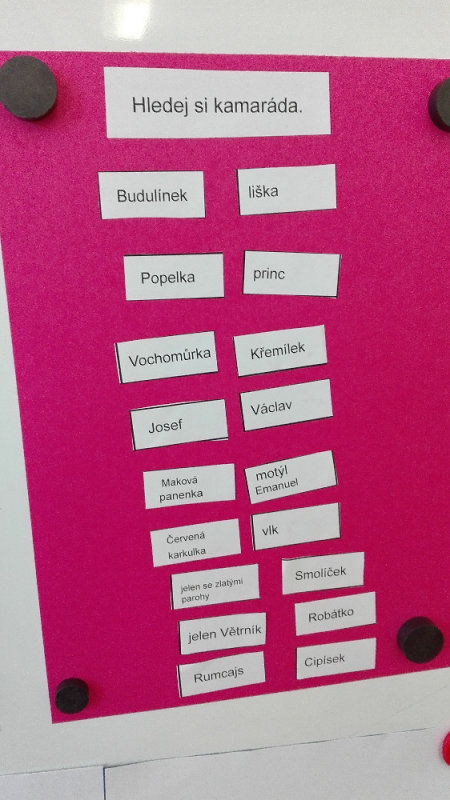 Hledej si kamaráda.
Budulínek liška
Popelka princ
Vochomůrka Křemílek
Josef Václav
Maková
panenka
motýl
Emanuel
Červená
karkulka
vlk
jelen se zlatými
parohy
Smolíček
jelen Větrník Robátko
Rumcajs Cipísek